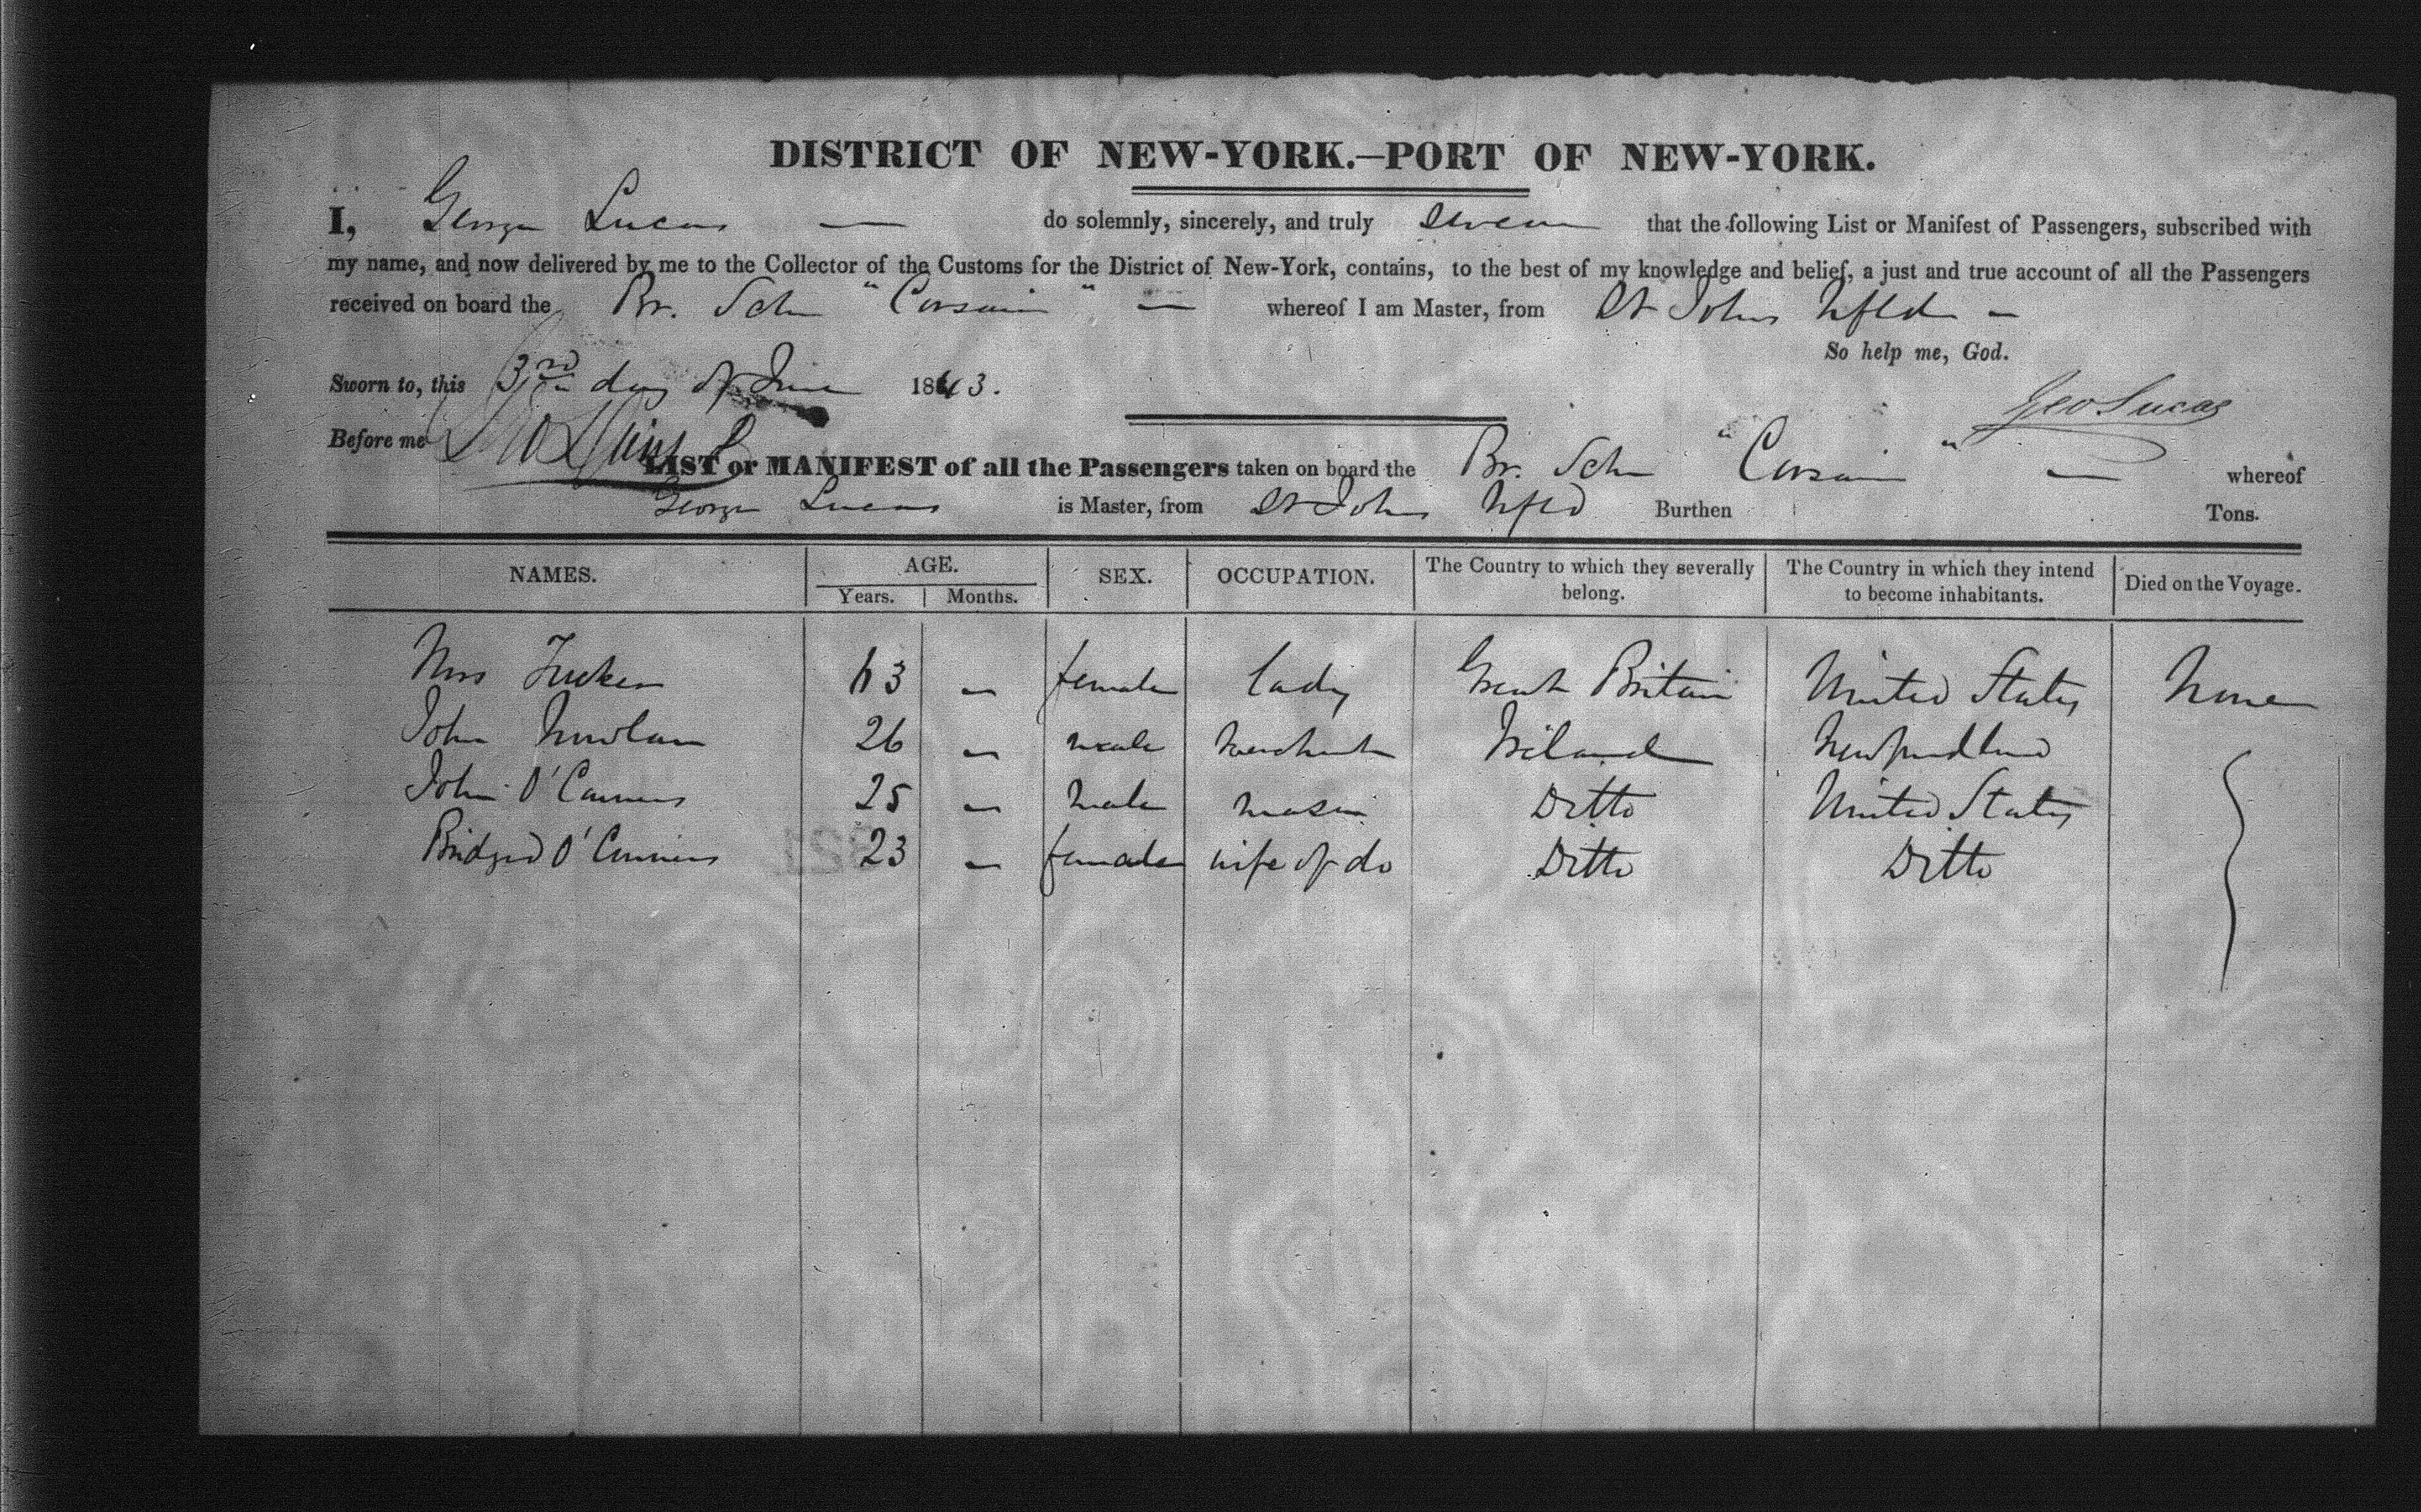 DISTRICT OF NEW-YORK.—PORT OF NEW-YORK.
I, George Lucas — do solemnly, sincerely, and truly swear that the following List or Manifest of Passengers, subscribed with
my name, and now delivered by me to the Collector of the Customs for the District of New-York, contains, to the best of my knowledge and belief, a just and true account of all the Passengers
received on board the Br. Sch "Corsair" — whereof I am Master, from St Johns Nfld —
So help me, God.
Sworn to, this 3rd day of June 1843.
Geo Lucas
Before me
LIST or MANIFEST of all the Passengers taken on board the Br. Sch "Corsair" — whereof
George Lucas is Master, from St Johns Nfld Burthen Tons.
NAMES. AGE. SEX. OCCUPATION. The Country to which they severally belong. The Country in which they intend to become inhabitants. Died on the Voyage.
Years. Months.
Mrs Tucker 63 — female lady Great Britain United States None
John Nowlan 26 — male merchant Ireland Newfoundland
John O'Connors 25 — male mason Ditto United States
Bridged O'Connors 23 — female wife of do Ditto Ditto